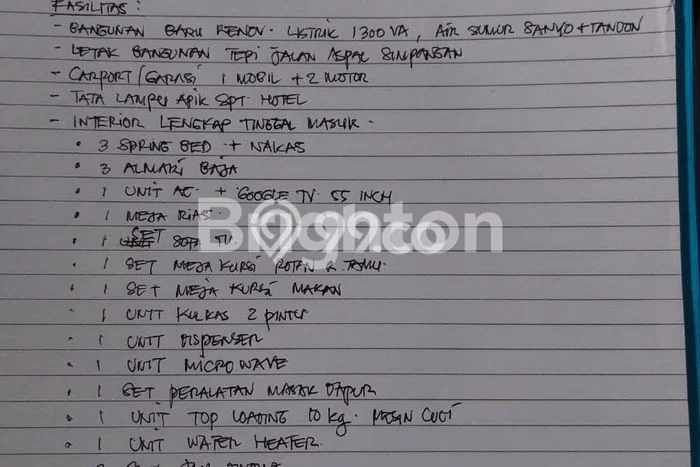 FASILITAS :
- BANGUNAN BARU RENOV. LISTRIK 1300 VA, AIR SUMUR SANYO + TANDON
- LETAK BANGUNAN TEPI JALAN ASPAL SIMPANGAN
- CARPORT/GARASI 1 MOBIL + 2 MOTOR
- TATA LAMPU APIK SPT. HOTEL
- INTERIOR LENGKAP TINGGAL MASUK.
• 3 SPRING BED + NAKAS
• 3 ALMARI BAJA
• 1 UNIT AC. + GOOGLE TV 55 INCH
• 1 MEJA RIAS
• 1 SET SOFA TV
Brighton
99.co
• 1 SET MEJA KURSI ROTAN R. TAMU.
• 1 SET MEJA KURSI MAKAN
• 1 UNIT KULKAS 2 PINTU
• 1 UNIT DISPENSER
• 1 UNIT MICROWAVE
• 1 SET PERALATAN MASAK DAPUR
• 1 UNIT TOP LOADING 10 kg. MESIN CUCI
• 1 UNIT WATER HEATER.